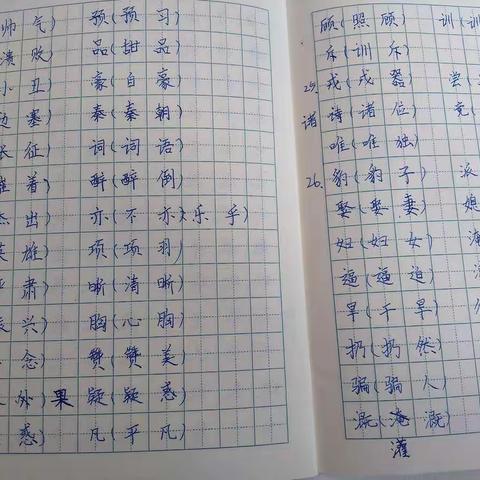 帅气) 预(预习)
溃败) 品(甜品)
小丑) 豪(自豪)
边塞) 秦(秦朝)
长征) 词(词语)
着) 醉(醉倒)
杰出) 亦(不亦乐乎)
英雄) 项(项羽)
严肃) 晰(清晰)
振兴) 胸(心胸)
念) 赞(赞美)
外)果 疑(疑惑)
惑) 凡(平凡)
顾(照顾) 训(训
斥(训斥)
25. 戎(戎器) 尝(
诸 诗(诸位) 竞(
唯(唯独)
26. 豹(豹子) 派
娶(娶妻) 媳
妇(妇女) 淹
逼(逼迫)
旱(干旱)
扔(扔然)
骗(骗人)
溉(淹溉)
灌